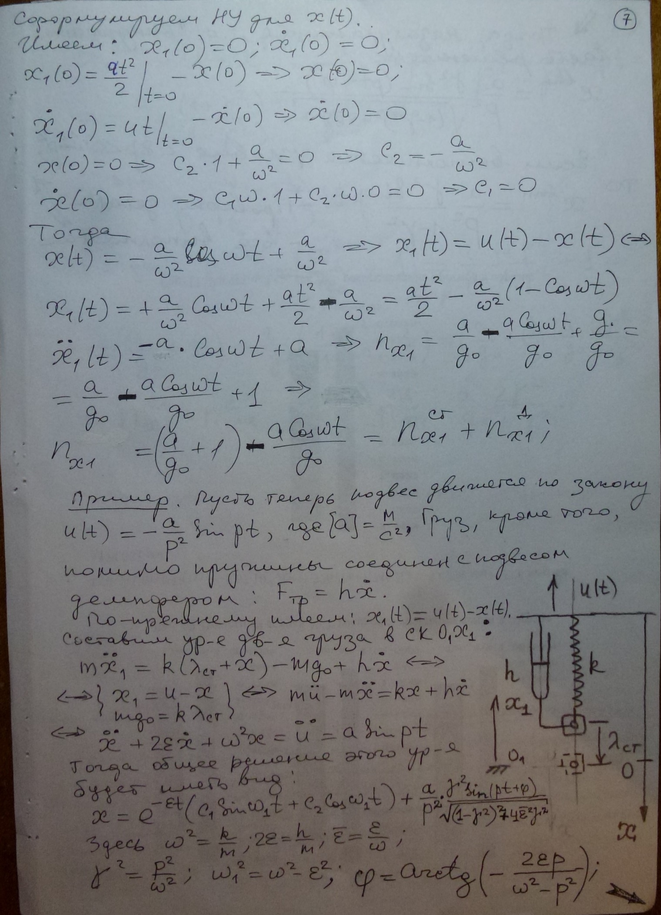 Сформулируем НУ для x(t).
7
Имеем: x₁(0)=0; ẋ₁(0)=0;
x₁(0)= at²/2 |t=0 − x(0) ⇒ x(0)=0;
ẋ₁(0)=ut|t=0 − ẋ(0) ⇒ ẋ(0)=0
x(0)=0 ⇒ C₂·1+ a/ω² =0 ⇒ C₂=− a/ω²
ẋ(0)=0 ⇒ C₁ω·1+C₂·ω·0=0 ⇒ C₁=0
Тогда
x(t)=− a/ω² Cos ωt + a/ω² ⇒ x₁(t)=u(t)−x(t) ⇔
x₁(t)=+ a/ω² Cosωt + at²/2 − a/ω² = at²/2 − a/ω² (1−Cosωt)
ẍ₁(t)=−a·Cosωt+a ⇒ nx1 = a/g₀ − aCosωt/g₀ + g₀/g₀ =
= a/g₀ − aCosωt/g₀ +1 ⇒
nx1 =(a/g₀ +1) − aCosωt/g₀ = nx1^ст + nx1^д;
Пример. Пусть теперь подвес движется по закону
u(t)=− a/p² Sin pt, где [a]= м/с², Груз, кроме того,
помимо пружины соединен с подвесом
демпфером: Fтр=hẋ.
По-прежнему имеем: x₁(t)=u(t)−x(t).
Составим ур-е дв-я груза в СК O₁x₁:
mẍ₁=k(λст+x)−mg₀+hẋ ⇔
⇔ {x₁=u−x
mg₀=kλст} ⇔ mü−mẍ=kx+hẋ
⇔ ẍ+2εẋ+ω²x=ü=a Sin pt
Тогда общее решение этого ур-я
будет иметь вид:
x=e^−εt(C₁Sinω₁t+C₂Cosω₁t)+ a/p² · γ²Sin(pt+φ)/√((1−γ²)²+4ε̄²γ²)
Здесь ω²= k/m; 2ε= h/m; ε̄= ε/ω;
γ²= p²/ω²; ω₁²=ω²−ε²; φ=arctg(− 2εp/(ω²−p²));
u(t)
h
k
x₁
λст
O₁
O
x